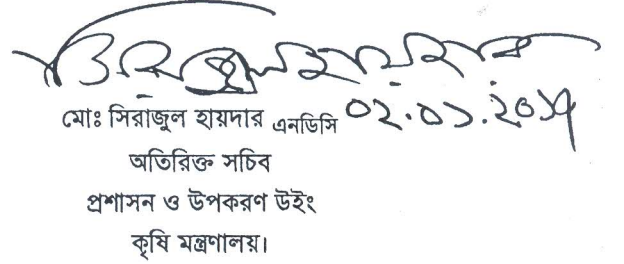 মোঃ সিরাজুল হায়দার এনডিসি ০২.০১.২০১৭
অতিরিক্ত সচিব
প্রশাসন ও উপকরণ উইং
কৃষি মন্ত্রণালয়।